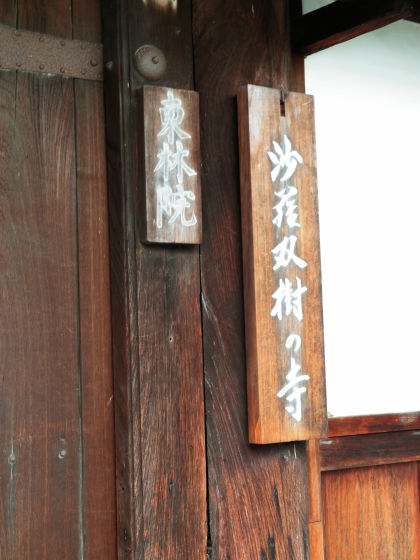 東林院
沙羅双樹の寺